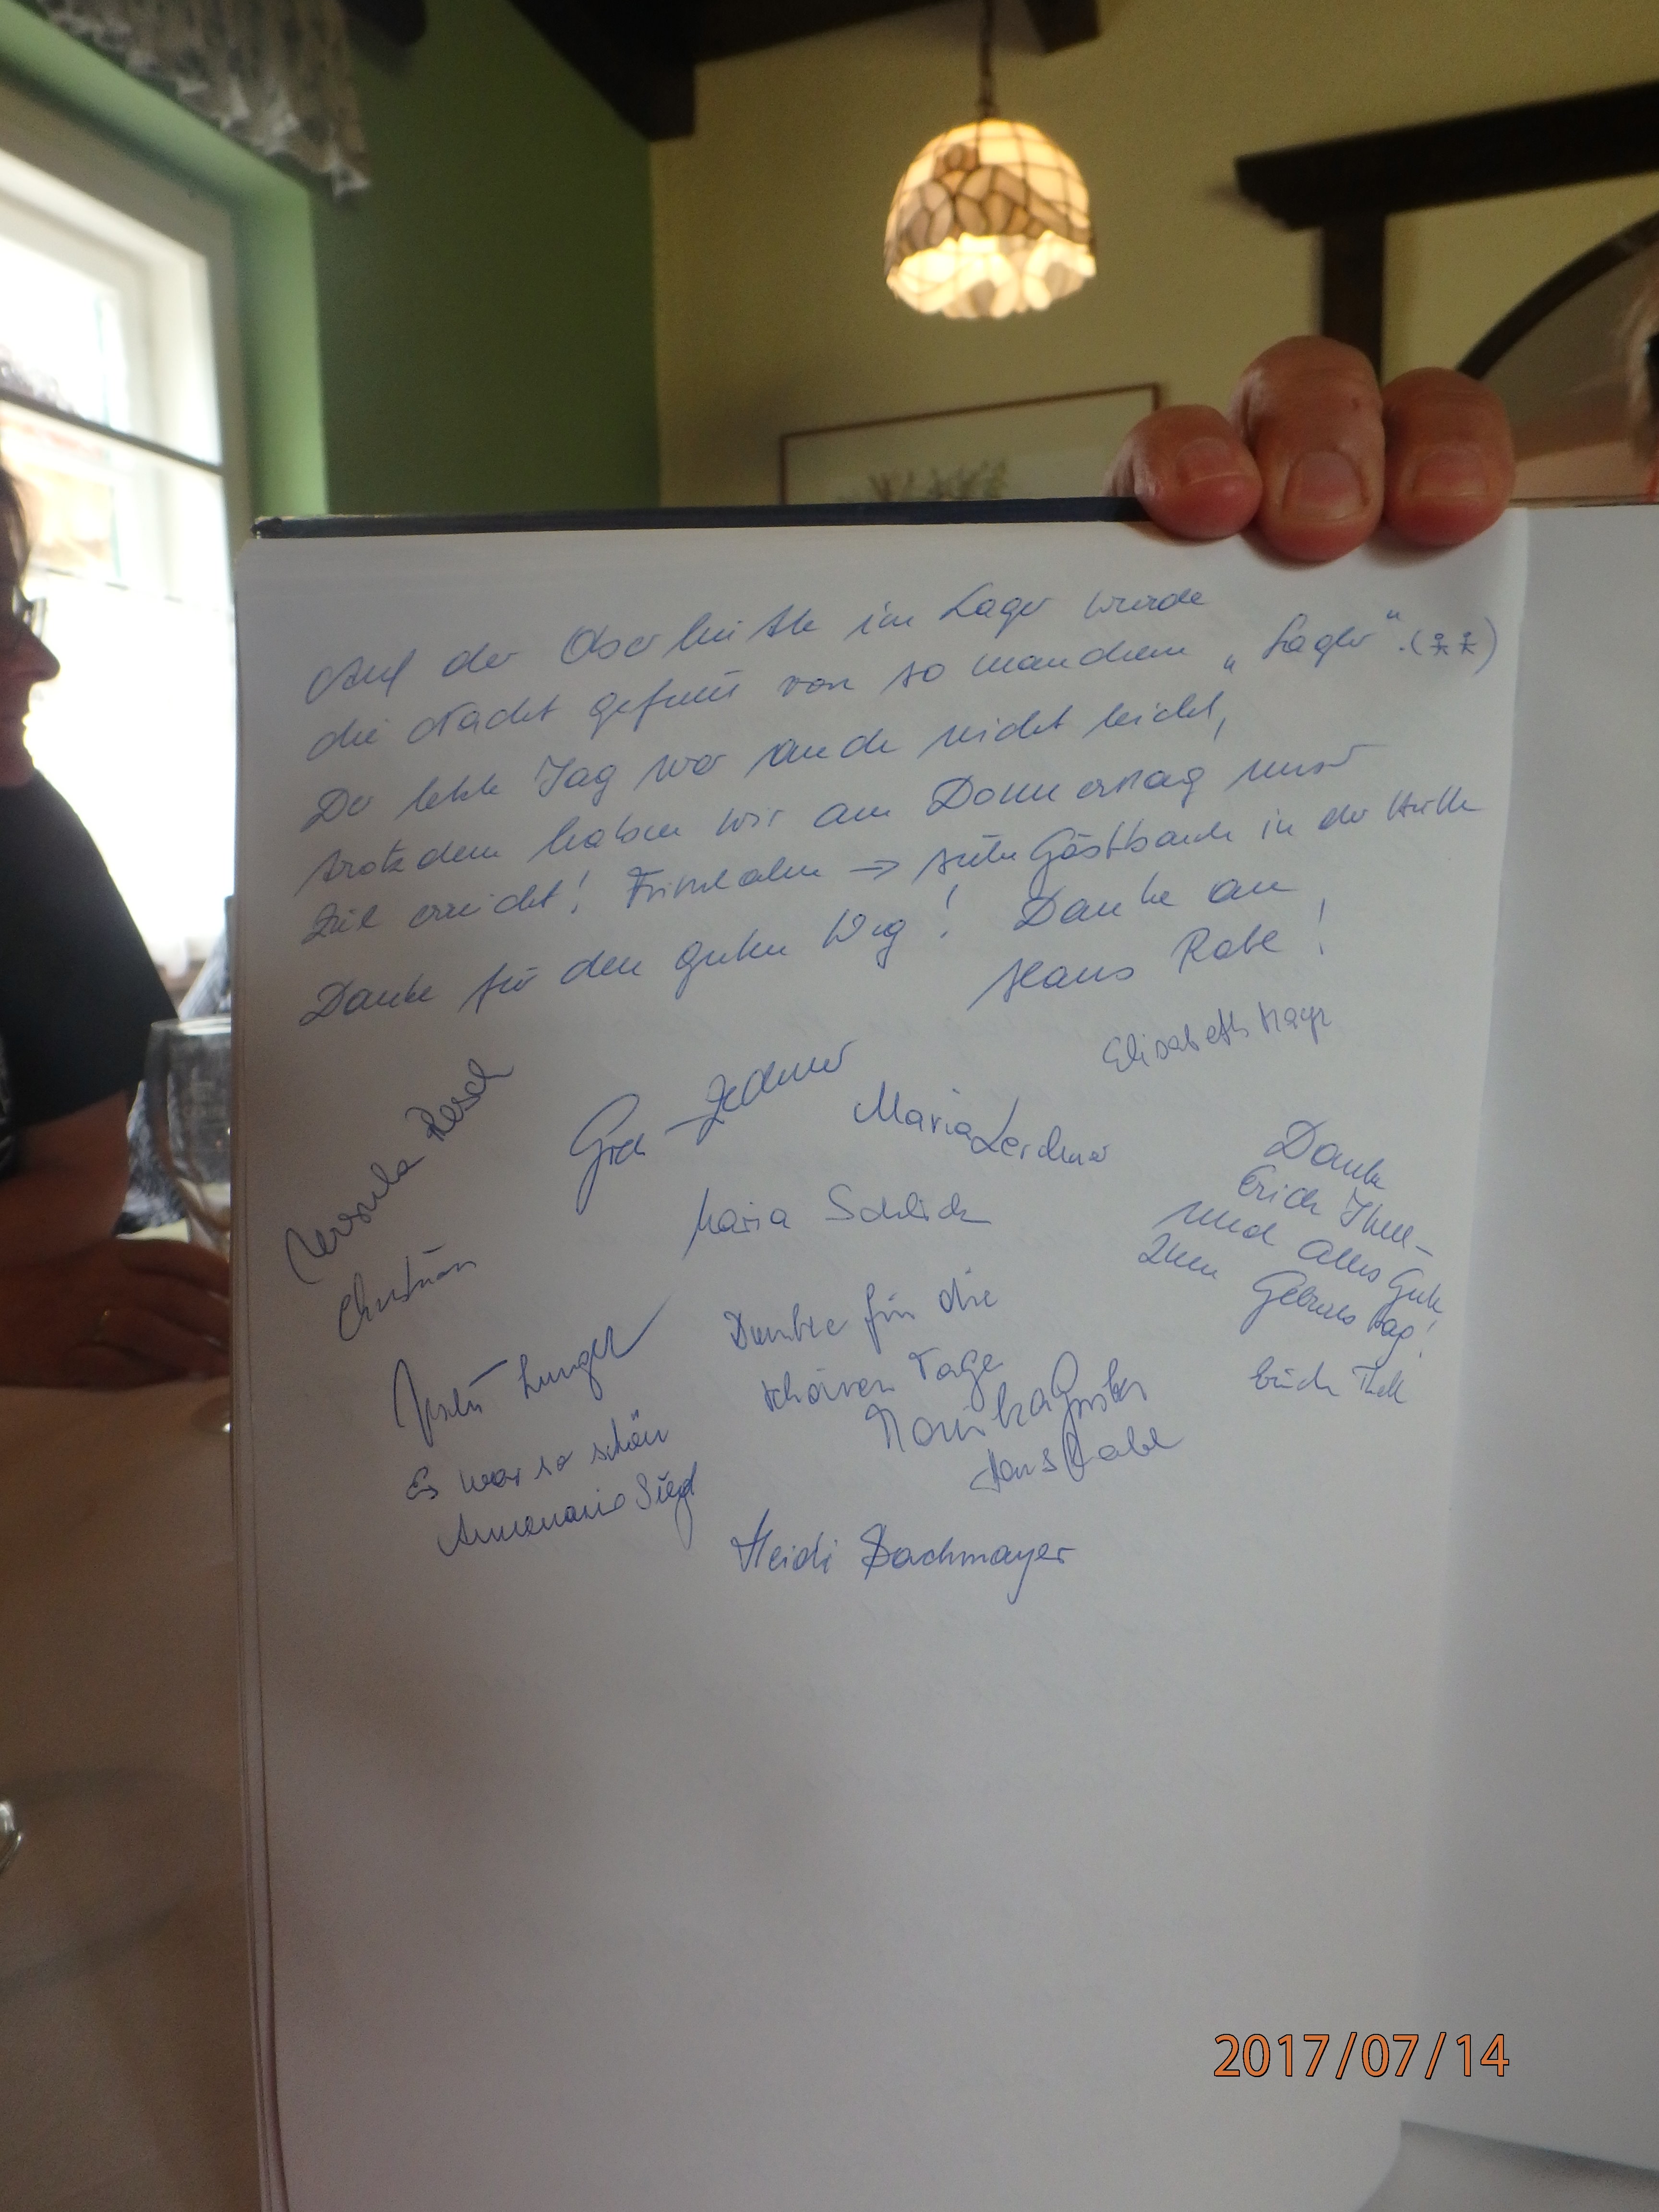 Auf der Oberhütte im Lager wurde
die Nacht von so manchem „Lagler".
Der letzte Tag war auch nicht leicht,
trotzdem haben wir am Donnerstag unser
Ziel erreicht! → in der Hütte
Danke für den guten Weg! Danke an
Hans Rabl!
Elisabeth Mayr
Ursula Resch
Maria Lerchner
Maria Schlick
Christian
Danke
Erich Thell -
und alles Gute
zum Geburtstag!
Danke für die
schönen Tage
Monika
Hans Rabl
Erich Thell
Es war so schön
Annemarie
Heidi Bachmayer
2017/07/14